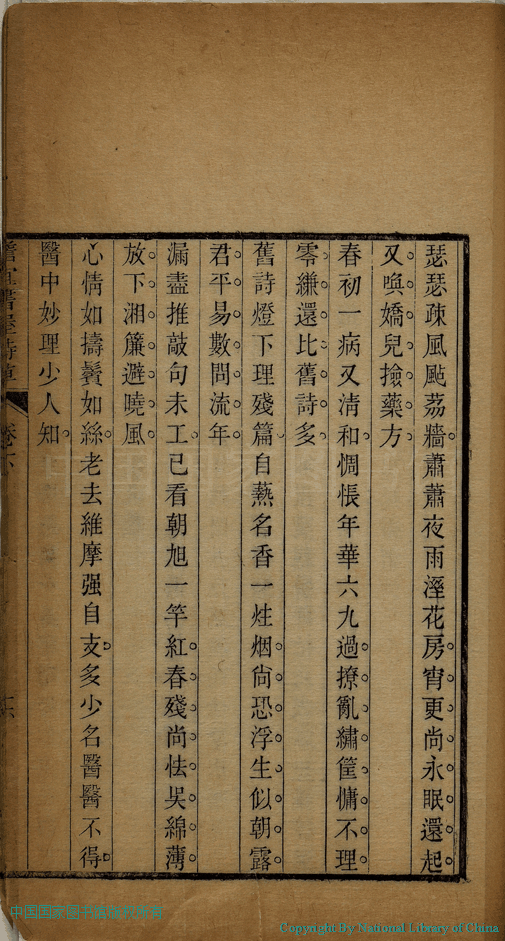 瑟瑟疎風颭荔牆蕭蕭夜雨溼花房宵更尚永眠還起
又喚嬌兒撿藥方
春初一病又淸和惆悵年華六九過撩亂繡筐慵不理
零縑還比舊詩多
舊詩燈下理殘篇自爇名香一炷烟尙恐浮生似朝露
君平易數問流年
漏盡推敲句未工已看朝旭一竿紅春殘尚怯吳綿薄
放下湘簾避曉風
心情如擣鬢如絲老去維摩强自支多少名醫醫不得
醫中妙理少人知
卷六
Copyright By National Library of China